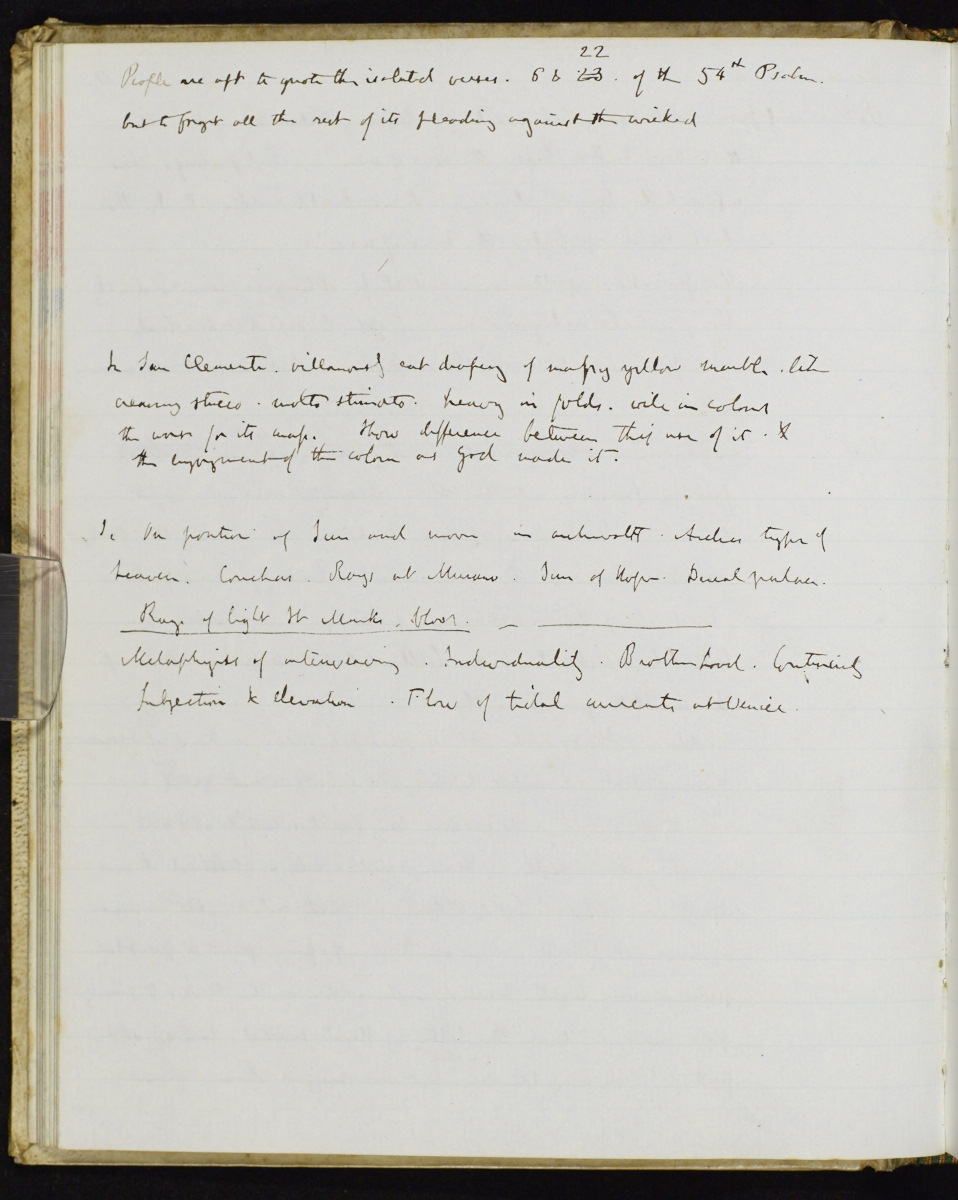 22
People are apt to quote the isolated verses. 6 & 23. of the 54th Psalm.
but to forget all the rest of its pleading against the wicked
In San Clemente. villanously cut drapery of massy yellow marble. like
creamy stucco. molto stimato. heavy in folds. vile in colour
the worse for its Show difference between this use of it. &
the enjoyment of the colour as God made it.
On position of Sun and moon in archivolt. Arches type of
heaven. Conchas. Rays at Murano. Sun of Hope. Ducal palace.
Rays of light St Marks. floor.
Metaphysics of interweaving. Individuality. Brotherhood. Continuity
Subjection & Elevation. Flow of tidal currents at Venice.